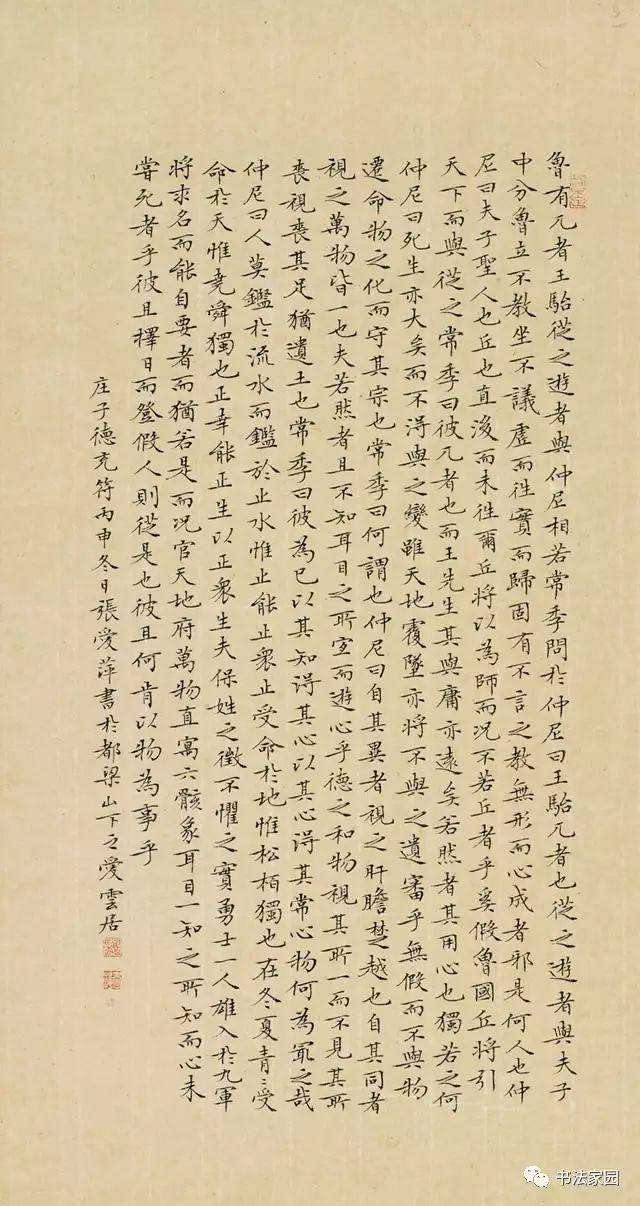 魯有兀者王駘從之遊者與仲尼相若常季問於仲尼曰王駘兀者也從之遊者與夫子
中分魯立不教坐不議虛而往實而歸固有不言之教無形而心成者邪是何人也仲
尼曰夫子聖人也丘也直後而未往爾丘將以為師而况不若丘者乎奚假魯國丘將引
天下而與從之常季曰彼兀者也而王先生其與庸亦遠矣若然者其用心也獨若之何
仲尼曰死生亦大矣而不淂與之變雖天地覆墜亦將不與之遺審乎無假而不與物
遷命物之化而守其宗也常季曰何謂也仲尼曰自其異者視之肝膽楚越也自其同者
視之萬物皆一也夫若然者且不知耳目之所宜而遊心乎德之和物視其所一而不見其所
喪視喪其足猶遺土也常季曰彼為己以其知淂其心以其心淂其常心物何為冣之哉
仲尼曰人莫鑑於流水而鑑於止水惟止能止衆止受命於地惟松栢獨也在冬夏青〻受
命於天惟堯舜獨也正幸能正生以正衆生夫保姓之徵不懼之實勇士一人雄入於九軍
將求名而能自要者而猶若是而况官天地府萬物直寓六骸象耳目一知之所知而心未
嘗死者乎彼且擇日而登假人則從是也彼且何肯以物為事乎
庄子德充符丙申冬日張愛萍書於都梁山下之愛雲居
书法家园